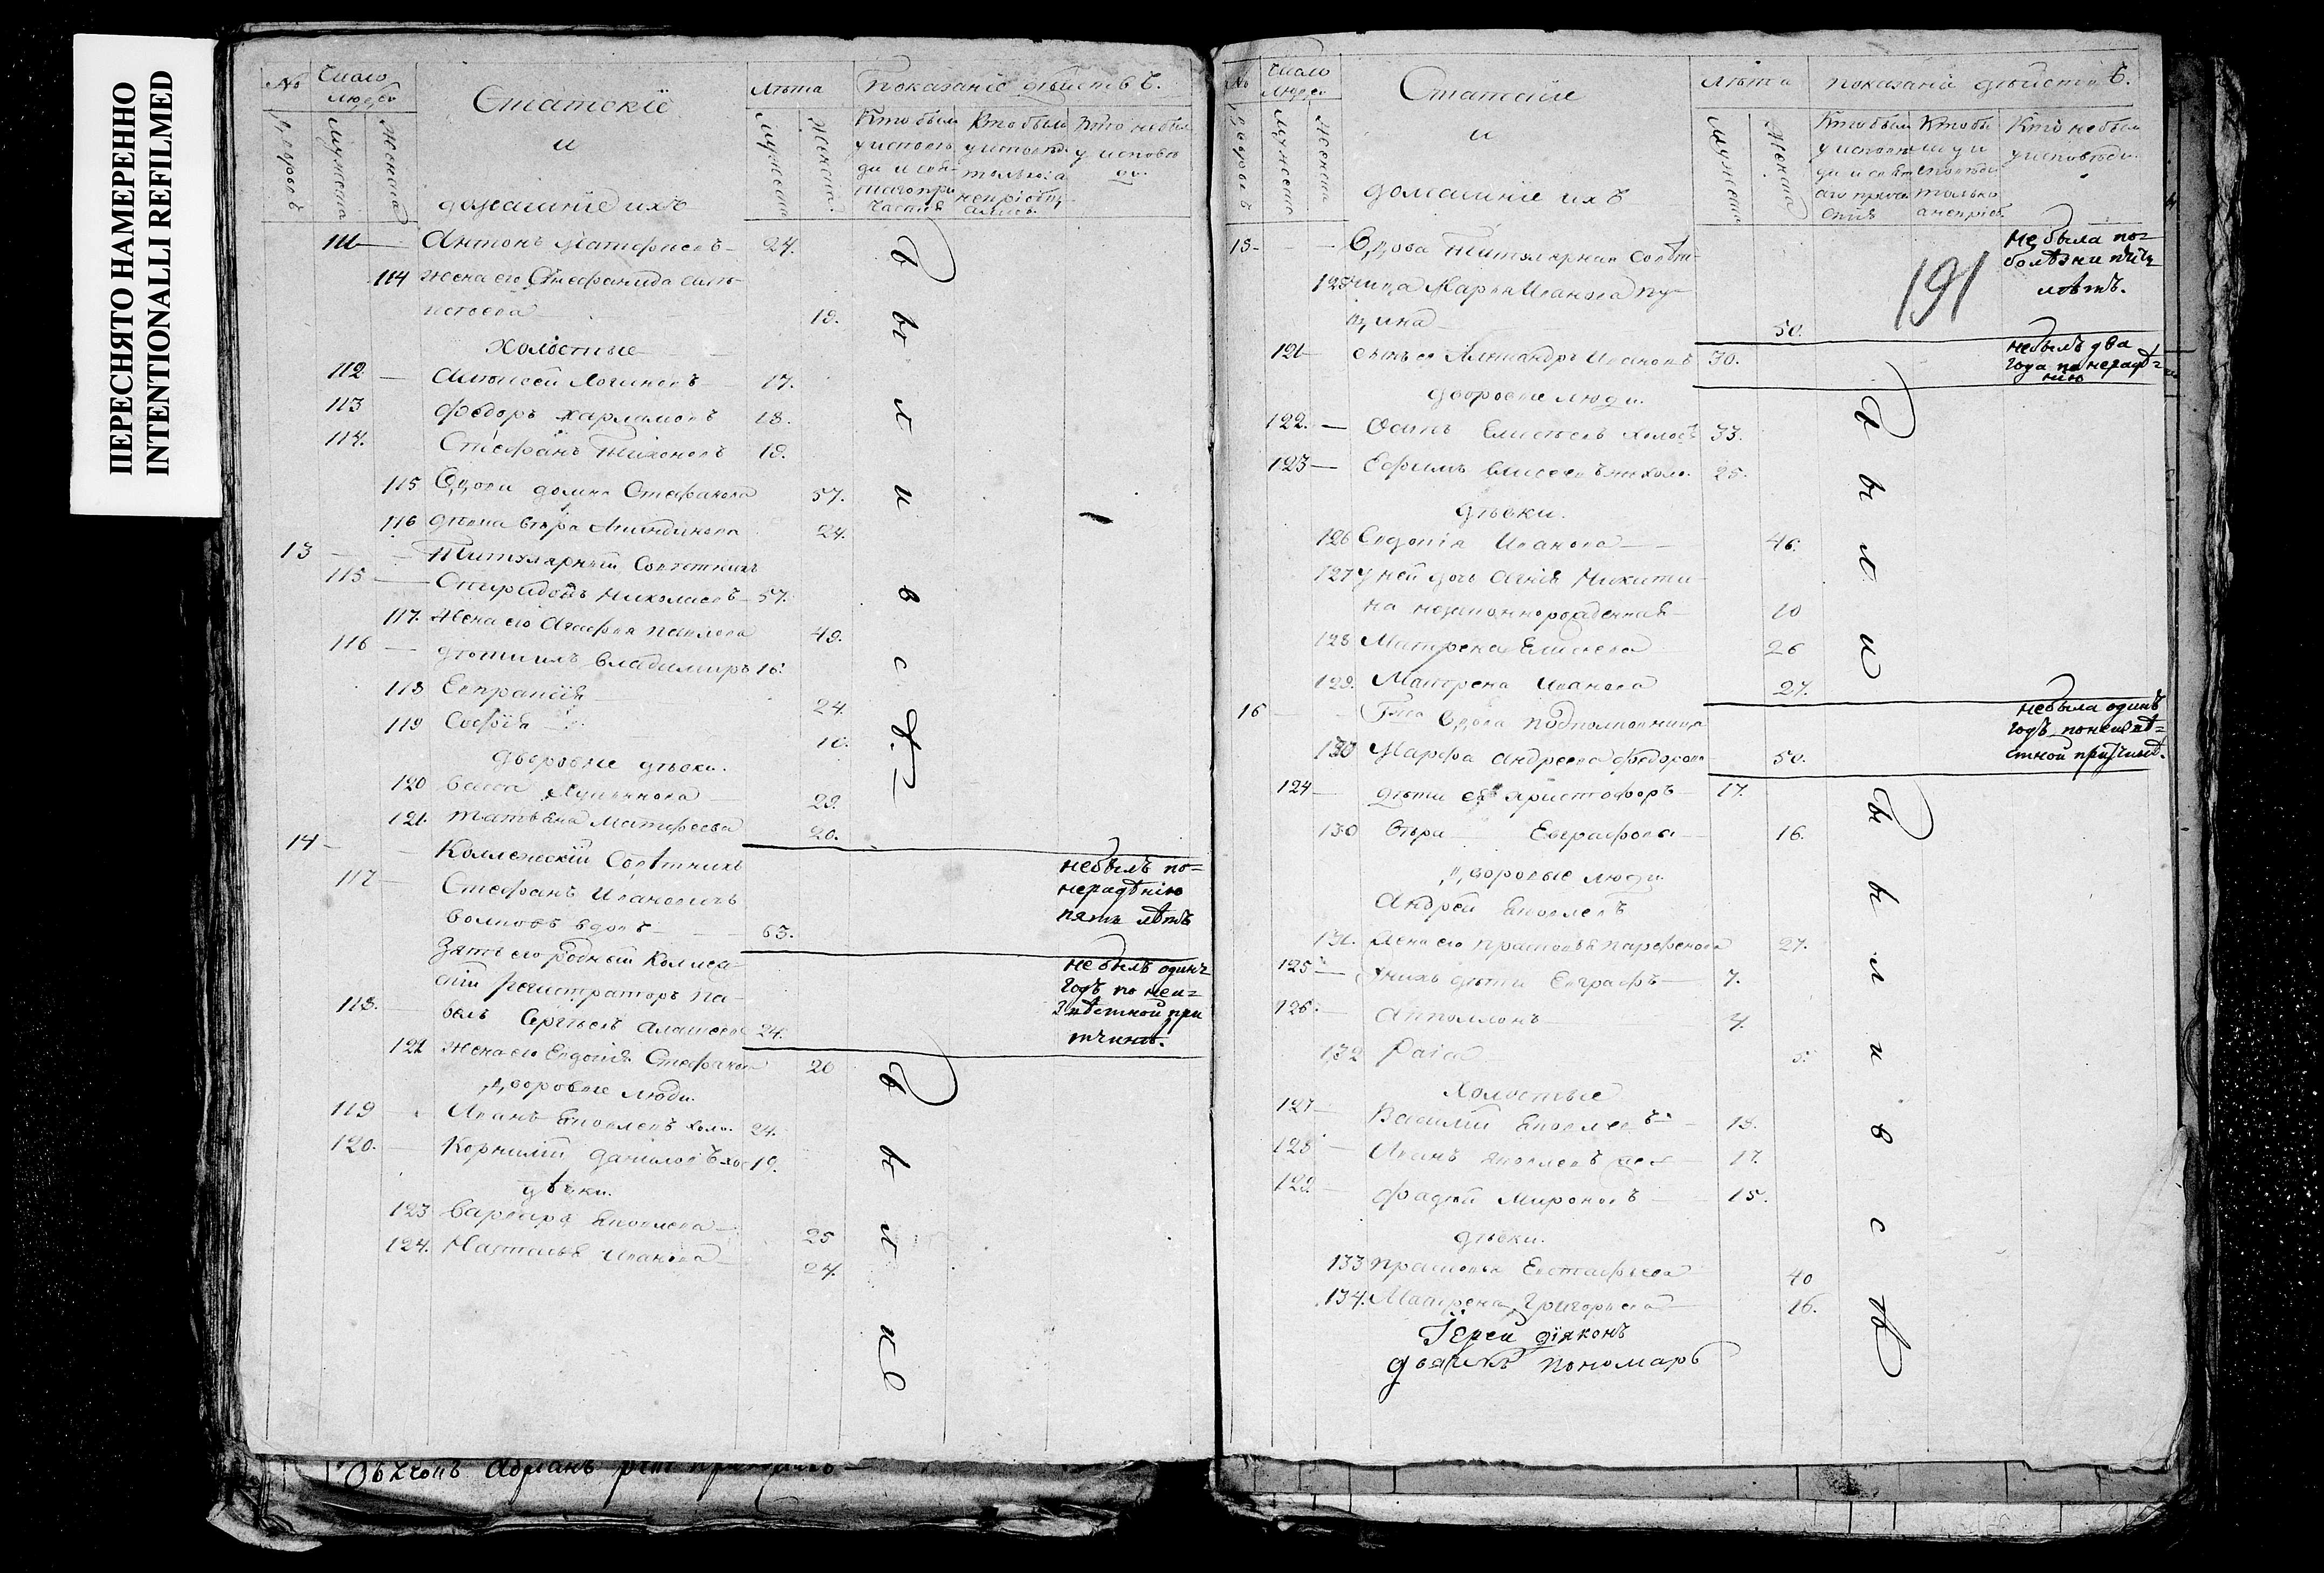 ПЕРЕСНЯТО НАМЕРЕННО
INTENTIONALLI REFILMED
№ Число людей
Статскіе
и
домашніе ихъ
лѣта
показаніе дѣйствъ.
дворовъ
мужеска
женска
мужеска
женска
Кто былъ у исповѣди и святаго причастія
Кто былъ у исповѣди только а непріобщались
Кто небылъ у исповѣди.
111 — Антонъ Матфеевъ — 24.
114 жена его Стефанида
19.
холостые
112 — Логиновъ 17.
113 Федоръ Харламовъ 18.
114. Стефанъ Тихоновъ 19.
115 Стефанова 57.
116 24.
13 — — Титулярный Совѣтникъ
115 — Спиридонъ Николаевъ — 57.
117. Жена его Агафья Павлова 49.
116 — дѣти ихъ Владимиръ 16.
118 Евпраксія 24.
119 Софія 10.
дворовые дѣвки.
120 29.
121. Татьяна Матфеева 20.
14 — Коллежскій Совѣтникъ
117 — Стефанъ Ивановичъ
Волковъ вдовъ 63.
небылъ по=
нерадѣнію
пять лѣтъ
Зять его родный Коллеж-
скій регистраторъ Па-
118. велъ Сергѣевъ 24.
небылъ одинъ
годъ по неи=
звѣстной при
тчинѣ.
121 жена его Евдокія Стефанова 20
дворовые люди.
119 Иванъ Яковлевъ холо. 24.
120. — Корнилій Даниловъ хо 19.
дѣвки.
123 Варвара Яковлева — 25
124. Наталья Иванова — 24.
были всѣ
были
№ Число людей
Статскіе
и
домашніе ихъ
лѣта
показаніе дѣйствъ.
дворовъ
мужеска
женска
мужеска
женска
Кто небылъ у исповѣди.
191
15 — — Вдова Титулярная Совѣт-
125 ница Марья Иванова Пу-
щина 50.
не была по=
болѣзни пять
лѣтъ.
121 сынъ ея Александръ Ивановъ 30.
небылъ два
года по нерадѣ=
нію
дворовые люди.
122. — Осипъ Елисѣевъ холос. 33.
123 — Ефимъ Елисеевъ холо. 25.
дѣвки.
126 Евдокія Иванова — 46.
127 у ней дочь Никити-
на незаконнорожденная — 10
128 Матрена Елисеева 26
129. Матрена Иванова 27.
были
16 — Гжа Вдова подполковница
130 Марфа Андреева Федорова 50.
небыла одинъ
годъ по неизвѣ=
стной причинѣ.
124 — дѣти ея Христофоръ — 17.
130 Вѣра — Евграфова — 16.
дворовые люди.
Андрей Яковлевъ
131. Жена его Прасковья Парфенова 27.
125 — у нихъ дѣти Евграфъ — 7.
126. Апполлонъ 4.
132 Раіса 5.
холостые
127 — Василій Яковлевъ — 18.
128 — Иванъ Яковлевъ 17.
129 — Фадѣй Мироновъ — 15.
дѣвки.
133 Прасковья Евстафьева 40
134. Матрена Григорьева 16.
были всѣ
Іерей діяконъ
дьячикъ пономарь
Адріанъ